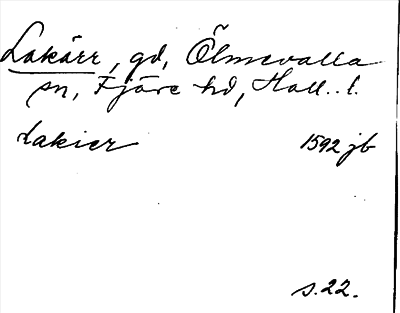 Lakärr, gd, Ölmevalla
sn, Fjäre hd, Hall. l.
Lakier 1592 jb
s. 22.